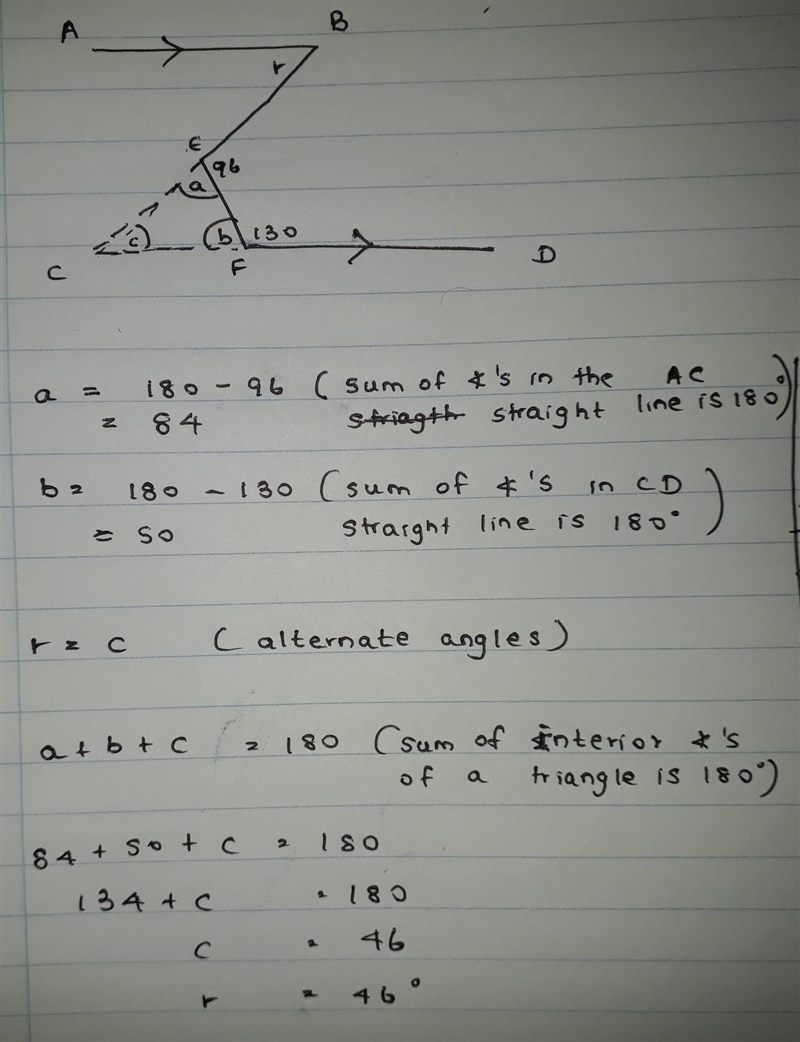 A B
r
E
96
a
c b 130
C F D
a = 180 - 96 ( sum of ∡'s in the AC
= 84 striagth straight line is 180° )
b = 180 - 130 ( sum of ∡'s in CD
= 50 straight line is 180° )
r = c ( alternate angles )
a + b + c = 180 ( sum of interior ∡'s
of a triangle is 180° )
84 + 50 + c = 180
134 + c = 180
c = 46
r = 46°